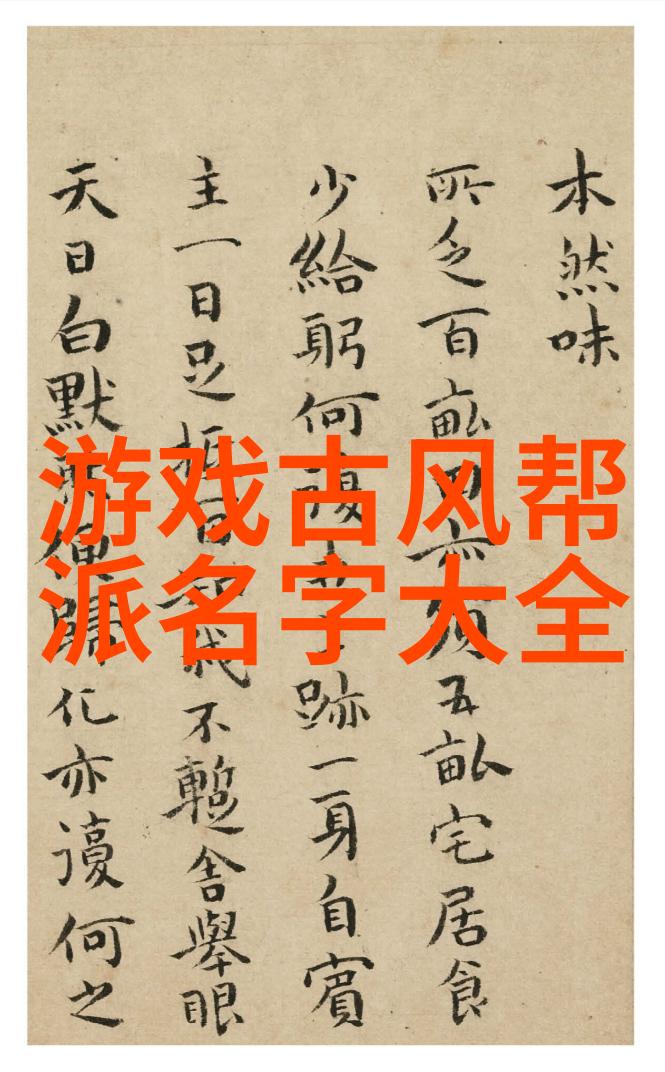 游戏古风帮
派名字大全
本然味
所乏百畝田亦須五畝宅居食
少給躬何復跡一身自賓
主一日足不暫舍舉眼
天日白默便歸化亦復何之